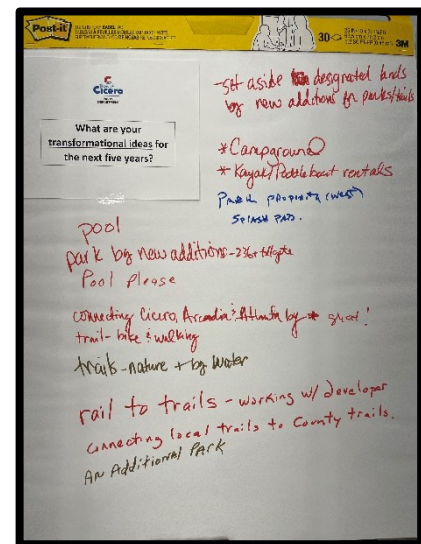 Post-it
30
3M
Cicero
What are your
transformational ideas for
the next five years?
-set aside designated lands
by new additions for parks/trails
*Campground
*Kayak/Paddle boat rentals
Park property (west)
Splash pad.
pool
park by new additions -
Pool Please
connecting Cicero, Arcadia & Atlanta by * great!
trail - bike & walking
trails - nature + by water
rail to trails - working w/ developer
connecting local trails to County trails.
An Additional Park